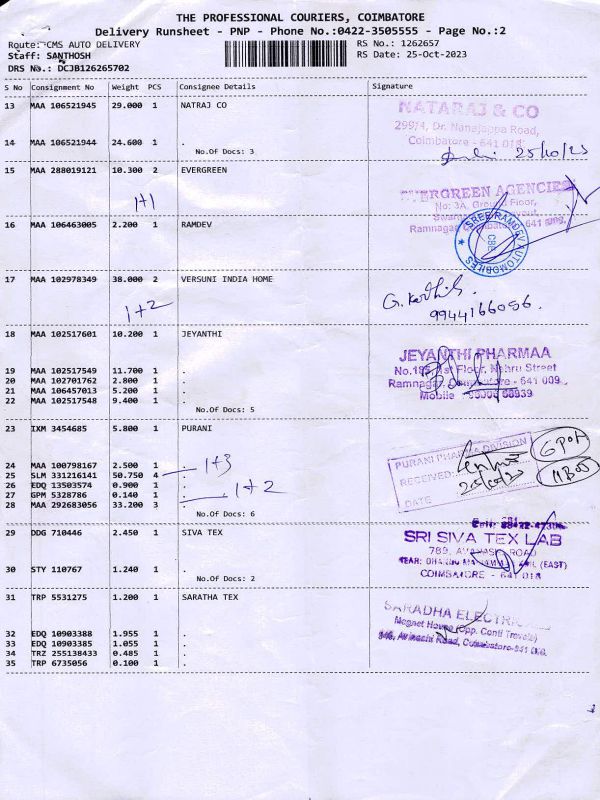 THE PROFESSIONAL COURIERS, COIMBATORE
Delivery Runsheet - PNP - Phone No.:0422-3505555 - Page No.:2
Route: CMS AUTO DELIVERY
RS No.: 1262657
Staff: SANTHOSH
RS Date: 25-Oct-2023
DRS No.: DCJB126265702
S No Consignment No Weight PCS Consignee Details Signature
13 MAA 106521945 29.000 1 NATRAJ CO
NATARAJ & CO
299/4, Dr. Nanajappa Road,
Coimbatore - 641 018
14 MAA 106521944 24.600 1 .
No.Of Docs: 3
25/10/23
15 MAA 288019121 10.300 2 EVERGREEN
1+1
EVERGREEN AGENCIES
No: 3A, Ground Floor,
Ramnagar, Coimbatore - 641 009.
16 MAA 106463005 2.200 1 RAMDEV
SREE RAMDEV AUTOMOBILES
CBE
17 MAA 102978349 38.000 2 VERSUNI INDIA HOME
1+2
G. Karthik
9944166056.
18 MAA 102517601 10.200 1 JEYANTHI
JEYANTHI PHARMAA
1st Floor, Nehru Street
Ramnagar, Coimbatore - 641 009.
Mobile
19 MAA 102517549 11.700 1 .
20 MAA 102701762 2.800 1 .
21 MAA 106457013 5.200 1 .
22 MAA 102517548 9.400 1 .
No.Of Docs: 5
23 IXM 3454685 5.800 1 PURANI
PURANI PHARMA DIVISION
RECEIVED
DATE
24 MAA 100798167 2.500 1 .
25 SLM 331216141 50.750 4 . 1+3
26 EDQ 13503574 0.900 1 .
27 GPM 5328786 0.140 1 . 1+2
28 MAA 292683056 33.200 3 .
No.Of Docs: 6
29 DDG 710446 2.450 1 SIVA TEX
SRI SIVA TEX LAB
789, AVANASHI ROAD
COIMBATORE - 641 018
30 STY 110767 1.240 1 .
No.Of Docs: 2
31 TRP 5531275 1.200 1 SARATHA TEX
SARADHA
Magnet House (Opp. Conti Travels)
Avinashi Road, Coimbatore-641
32 EDQ 10903388 1.955 1 .
33 EDQ 10903385 1.055 1 .
34 TRZ 255138433 0.485 1 .
35 TRP 6735056 0.100 1 .